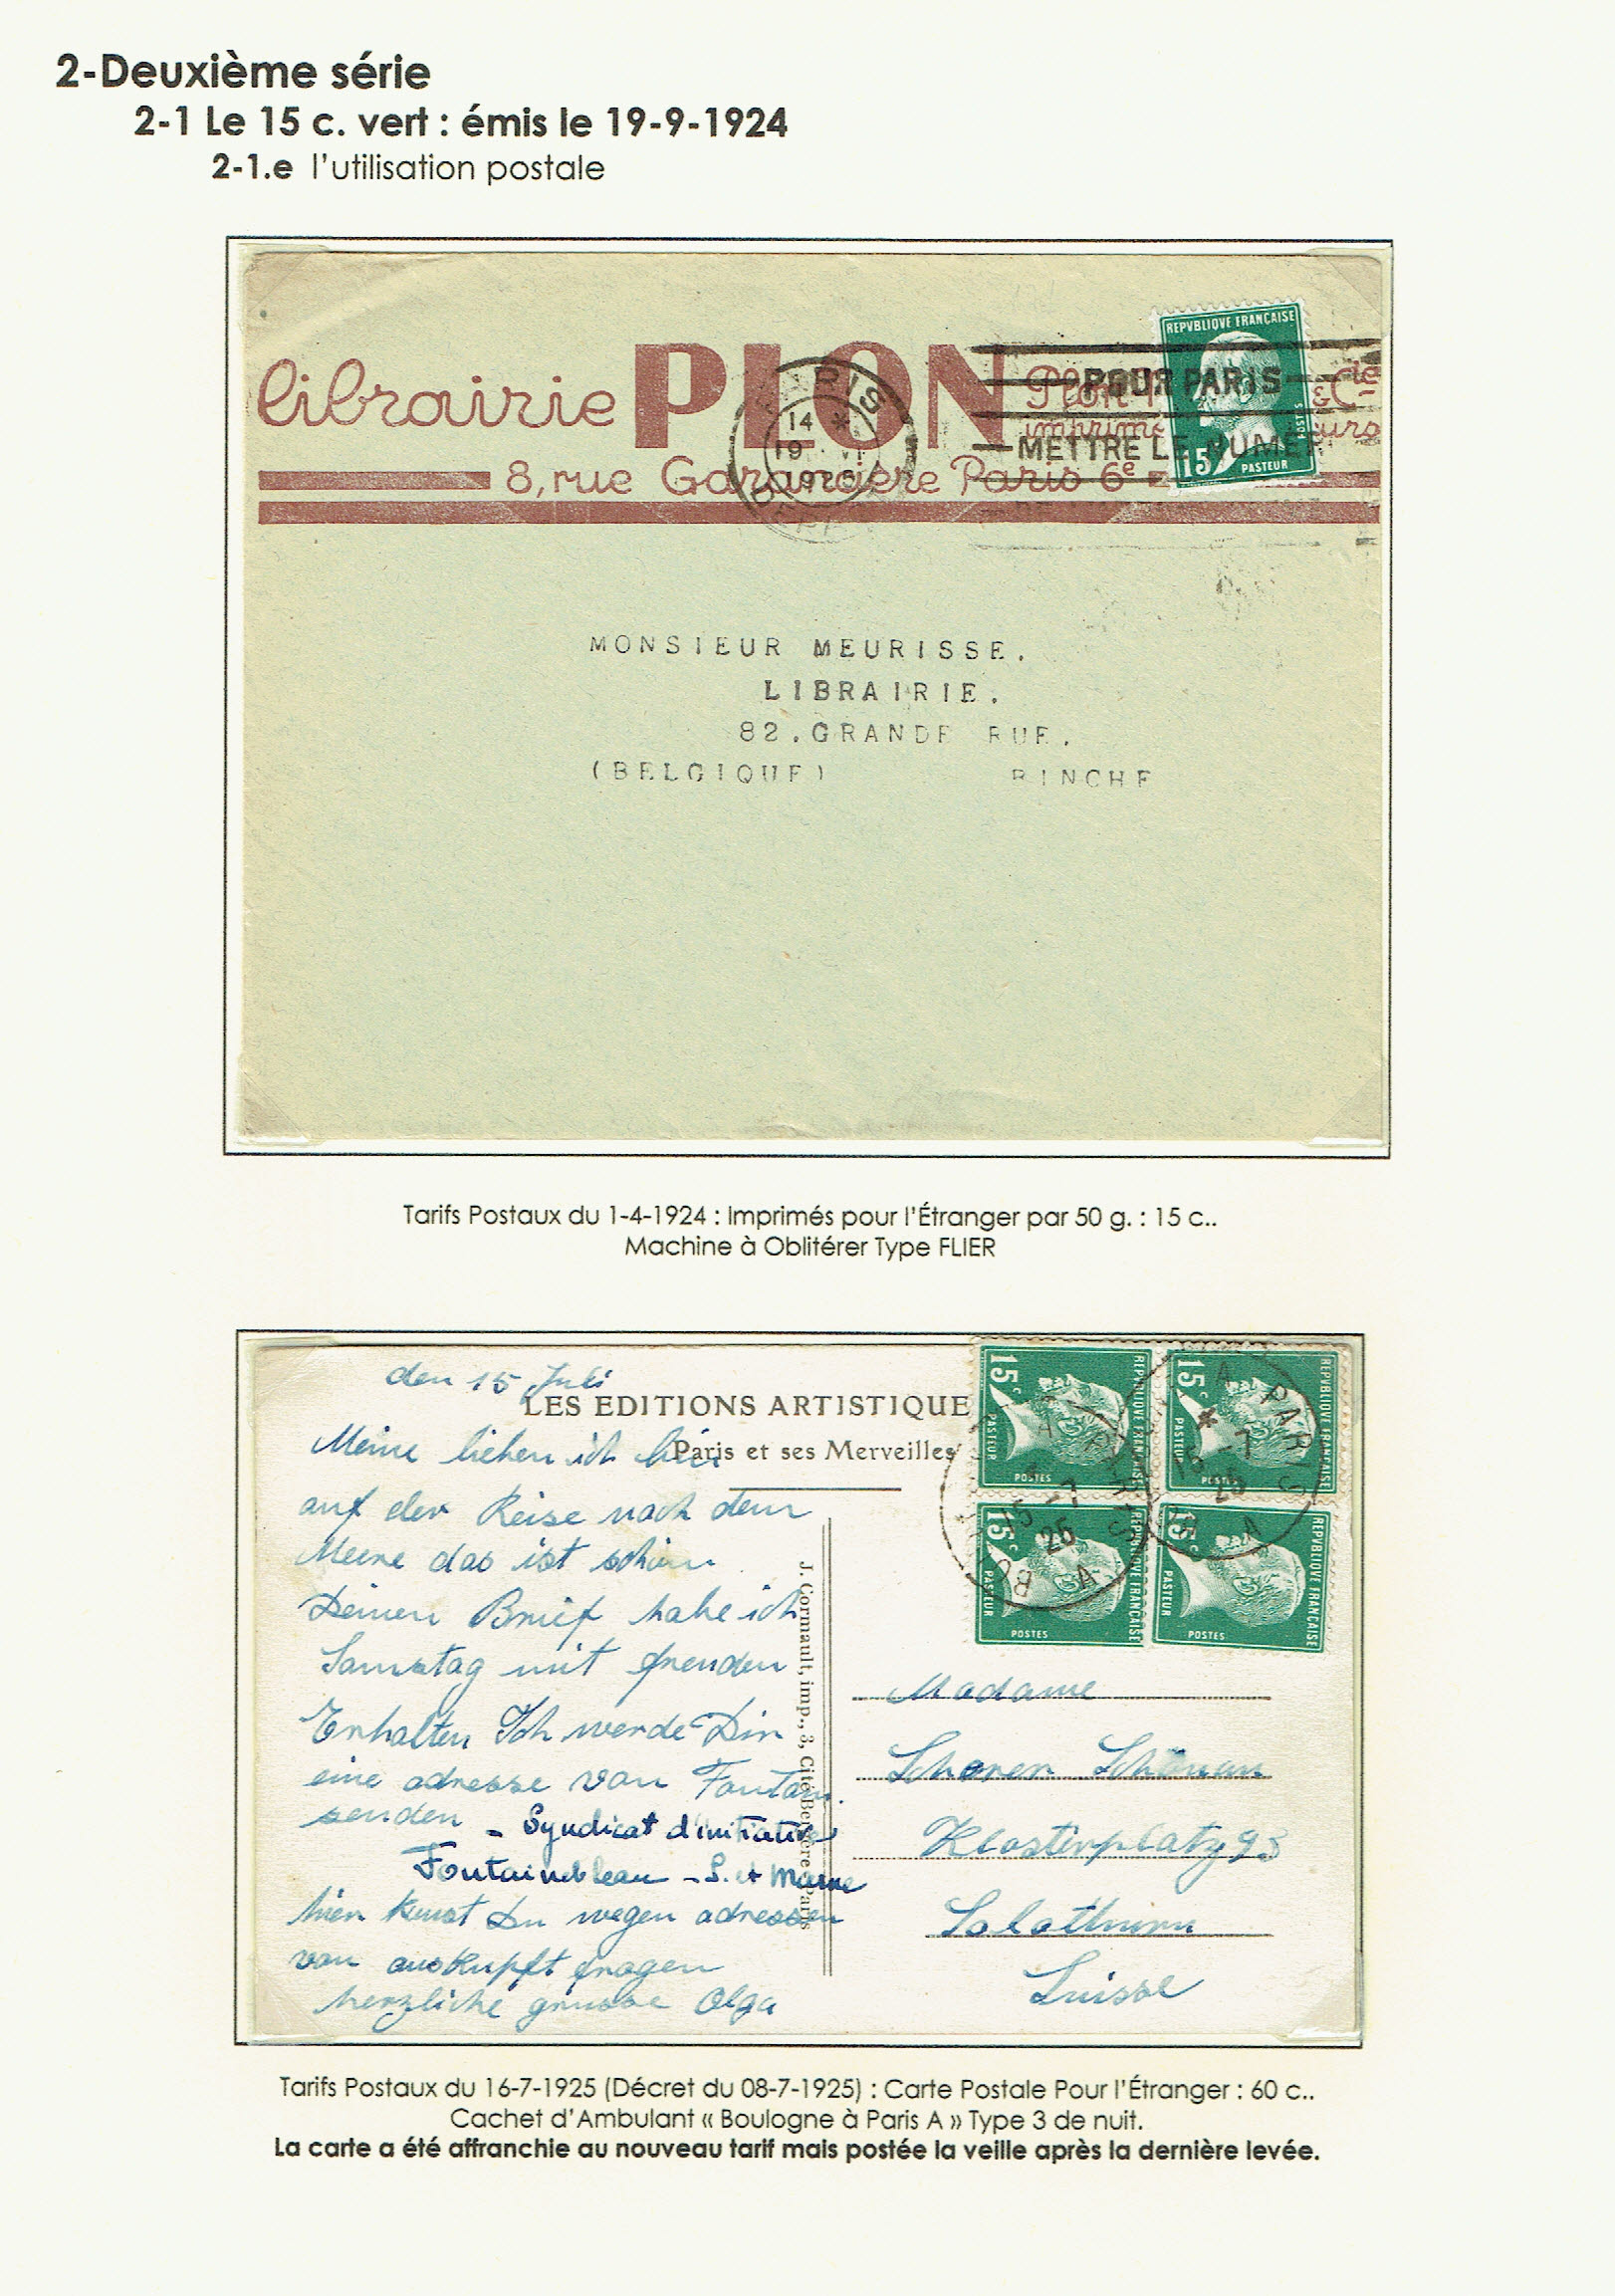 2-Deuxième série
2-1 Le 15 c. vert : émis le 19-9-1924
2-1.e l'utilisation postale
librairie PLON
8, rue Garancière Paris 6e
REPVBLIQVE FRANÇAISE
15c
POSTES
PASTEUR
PARIS
14 *
19 VI
DEPART
POUR PARIS
METTRE LE NUMER
MONSIEUR MEURISSE.
LIBRAIRIE.
82.GRANDE RUE.
(BELGIQUE) BINCHE
Tarifs Postaux du 1-4-1924 : Imprimés pour l'Étranger par 50 g. : 15 c..
Machine à Oblitérer Type FLIER
den 15 Juli
LES EDITIONS ARTISTIQUE
Paris et ses Merveilles
Meine lieben ich bin
auf der Reise nach dem
Meere das ist schön
Deinen Brief habe ich
Samstag mit freuden
Erhalten Ich werde Dir
eine adresse von Fontain.
senden - Syndicat d'initiative
Fontainebleau - S. et Marne
hier kanst Du wegen adressen
von auskupft fragen
herzliche grüsse Olga
J. Cormault, imp., 3, Cité Bergère Paris
REPVBLIQVE FRANÇAISE
15c
PASTEUR
POSTES
REPVBLIQVE FRANÇAISE
15c
PASTEUR
POSTES
REPVBLIQVE FRANÇAISE
15c
PASTEUR
POSTES
REPVBLIQVE FRANÇAISE
15c
PASTEUR
POSTES
A PARIS
*
15-7
25
A
A PARIS
15-7
25
A
Madame
Klosterplatz 93
Solothurn
Suisse
Tarifs Postaux du 16-7-1925 (Décret du 08-7-1925) : Carte Postale Pour l'Étranger : 60 c..
Cachet d'Ambulant « Boulogne à Paris A » Type 3 de nuit.
La carte a été affranchie au nouveau tarif mais postée la veille après la dernière levée.